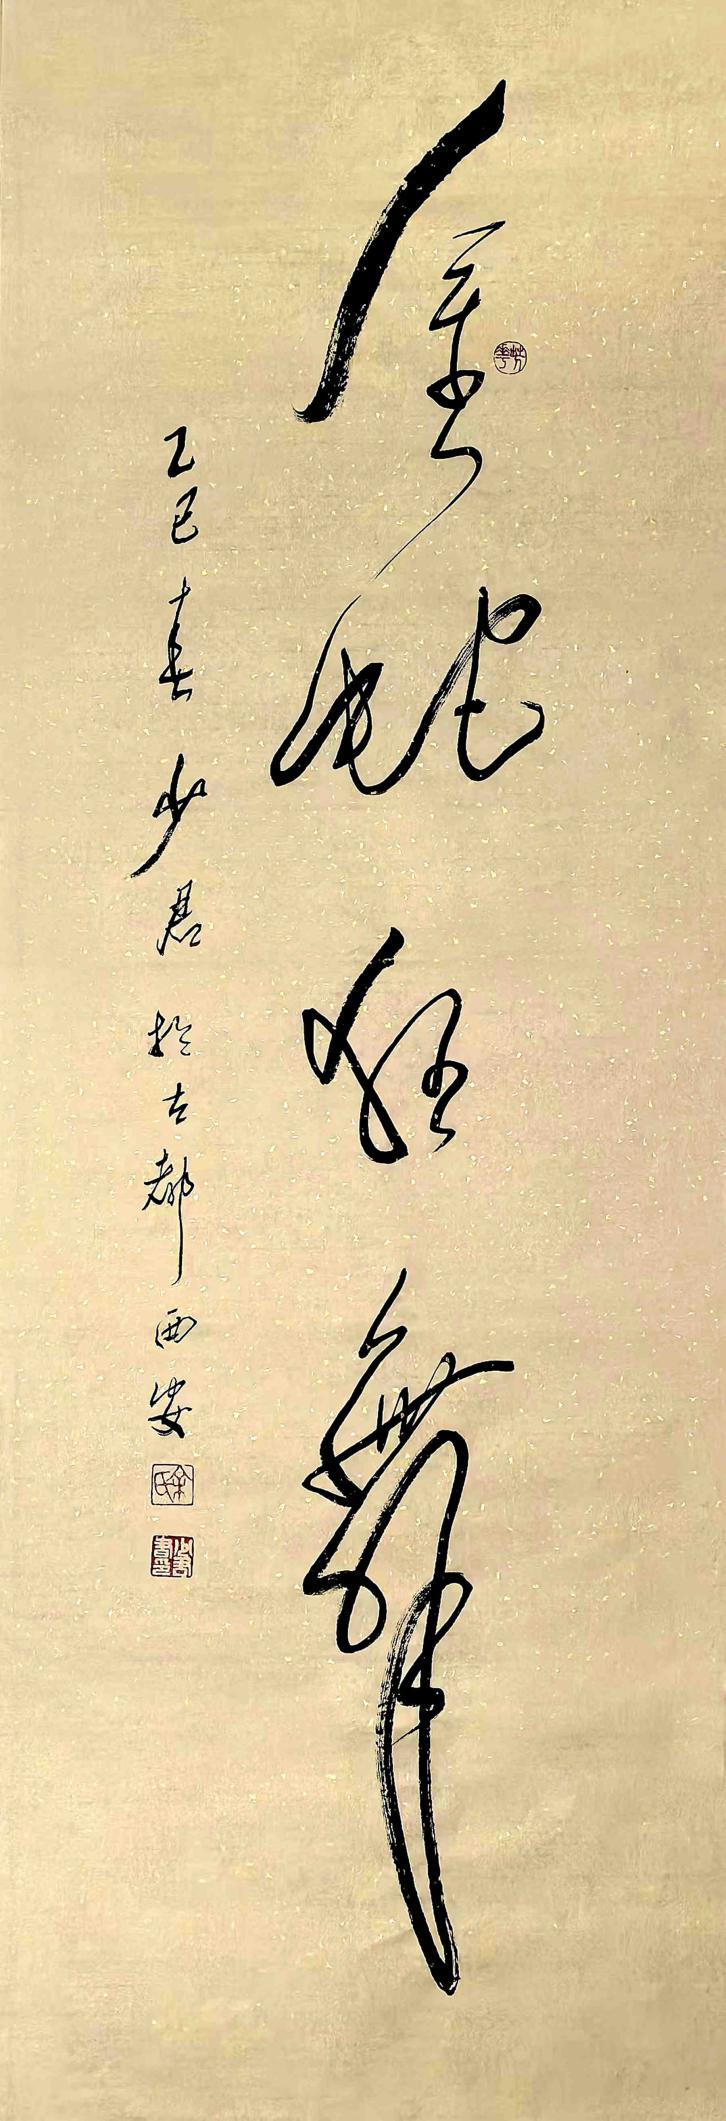 金蛇狂舞
乙巳春少君於古都西安